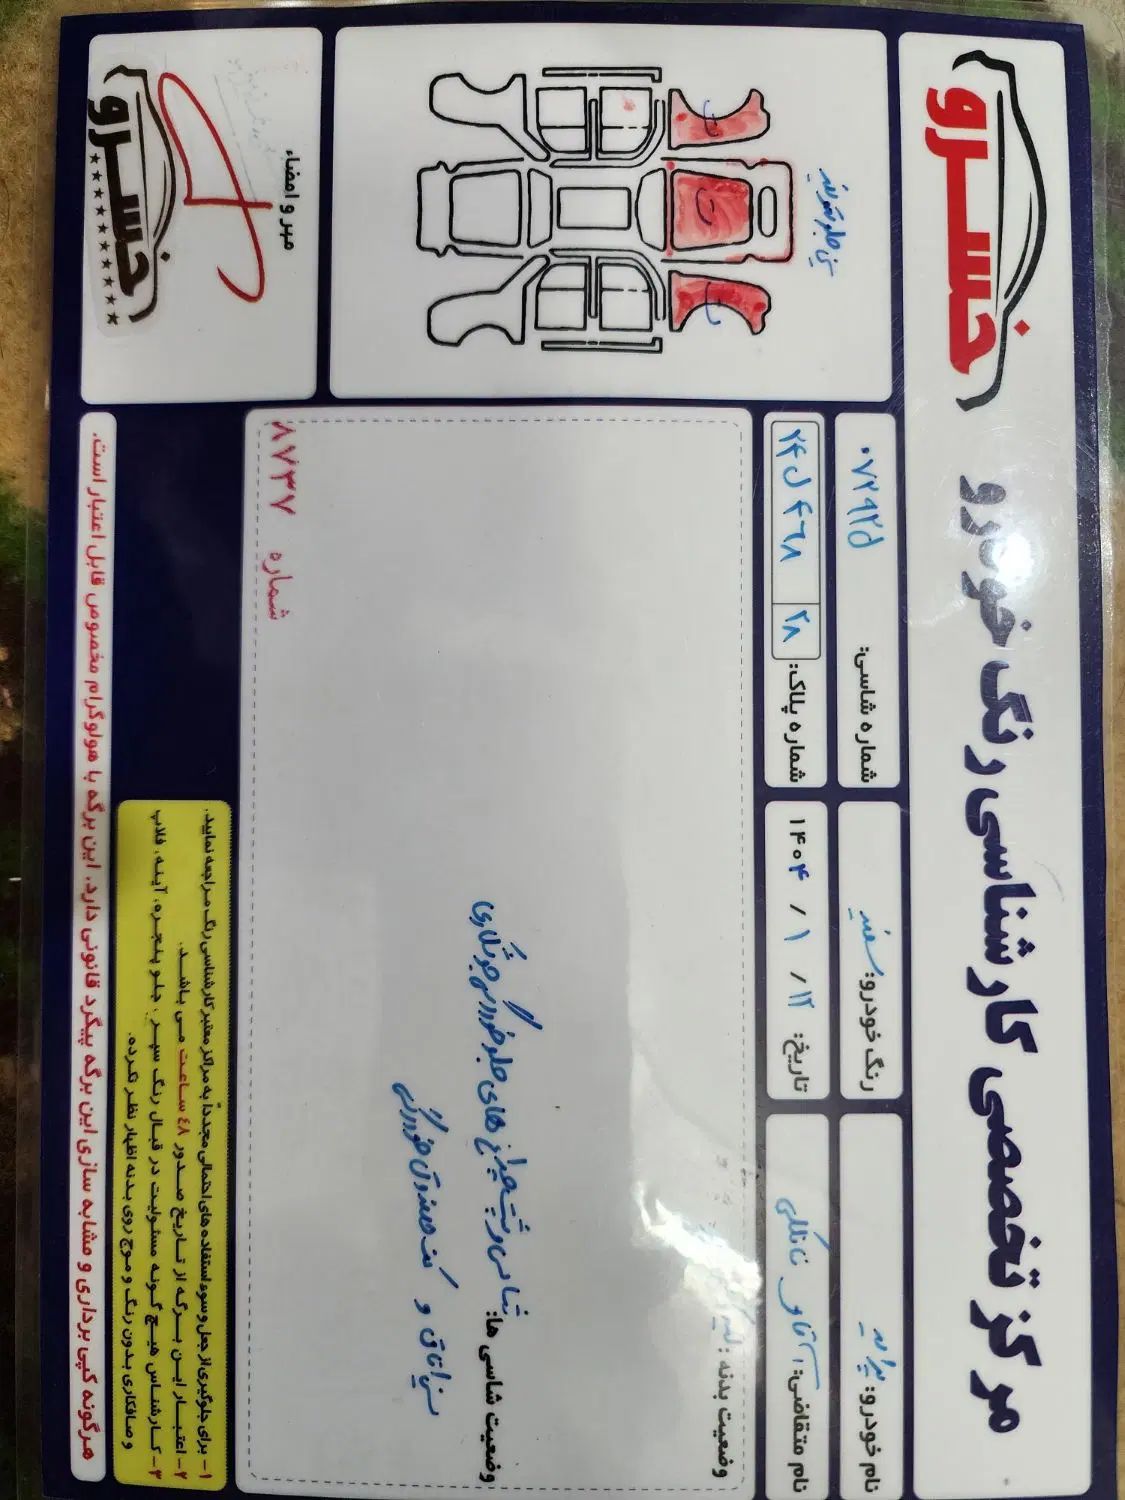 خسرو
مرکز تخصصی کارشناسی رنگ خودرو
نام خودرو: پراید
رنگ خودرو: سفید
شماره شاسی: ۰۷۲۹۲۵
نام متقاضی: آقای
تاریخ: ۱۲ / ۱ / ۱۴۰۴
شماره پلاک: ۲۴ل۴۶۸ ۲۸
سینی جلو تعویض
ت
ت
ت
وضعیت بدنه:
وضعیت شاسی ها: شاسی و پشت چراغ های جلو خوردگی جوشکاری
سینی اتاق و کف صندوق خوردگی
شماره ۸۷۳۷
مهر و امضاء
خسرو
۱- برای جلوگیری از جعل و سوء استفاده های احتمالی مجدداً به مراکز معتبر کارشناسی رنگ مراجعه نمایید.
۲- اعتبار این برگه از تاریخ صدور ۴۸ ساعت می باشد.
۳- کارشناس هیچ گونه مسئولیت در قبال رنگ سپر، جلو پنجره، آینه، قلاب
و صافکاری بدون رنگ و موج روی بدنه اظهار نظر نکرده.
هرگونه کپی برداری و مشابه سازی این برگه پیگرد قانونی دارد. این برگه با هولوگرام مخصوص قابل اعتبار است.